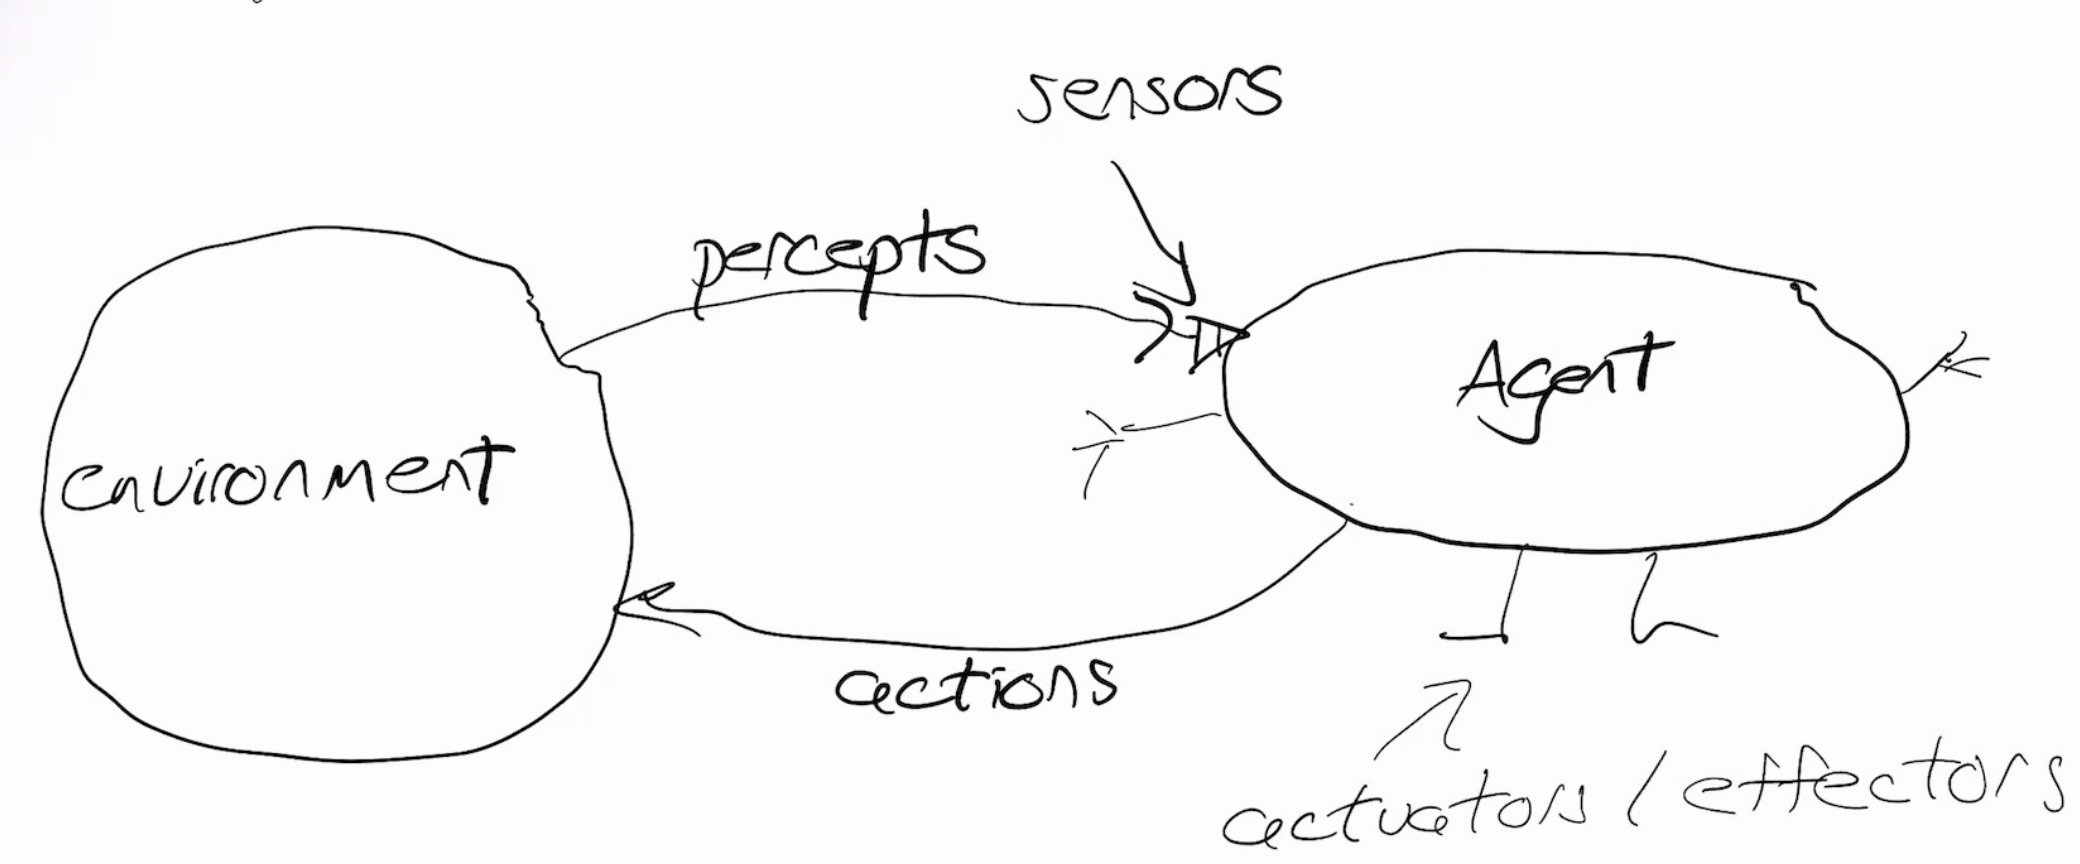 sensors
percepts
Agent
environment
actions
actuators / effectors